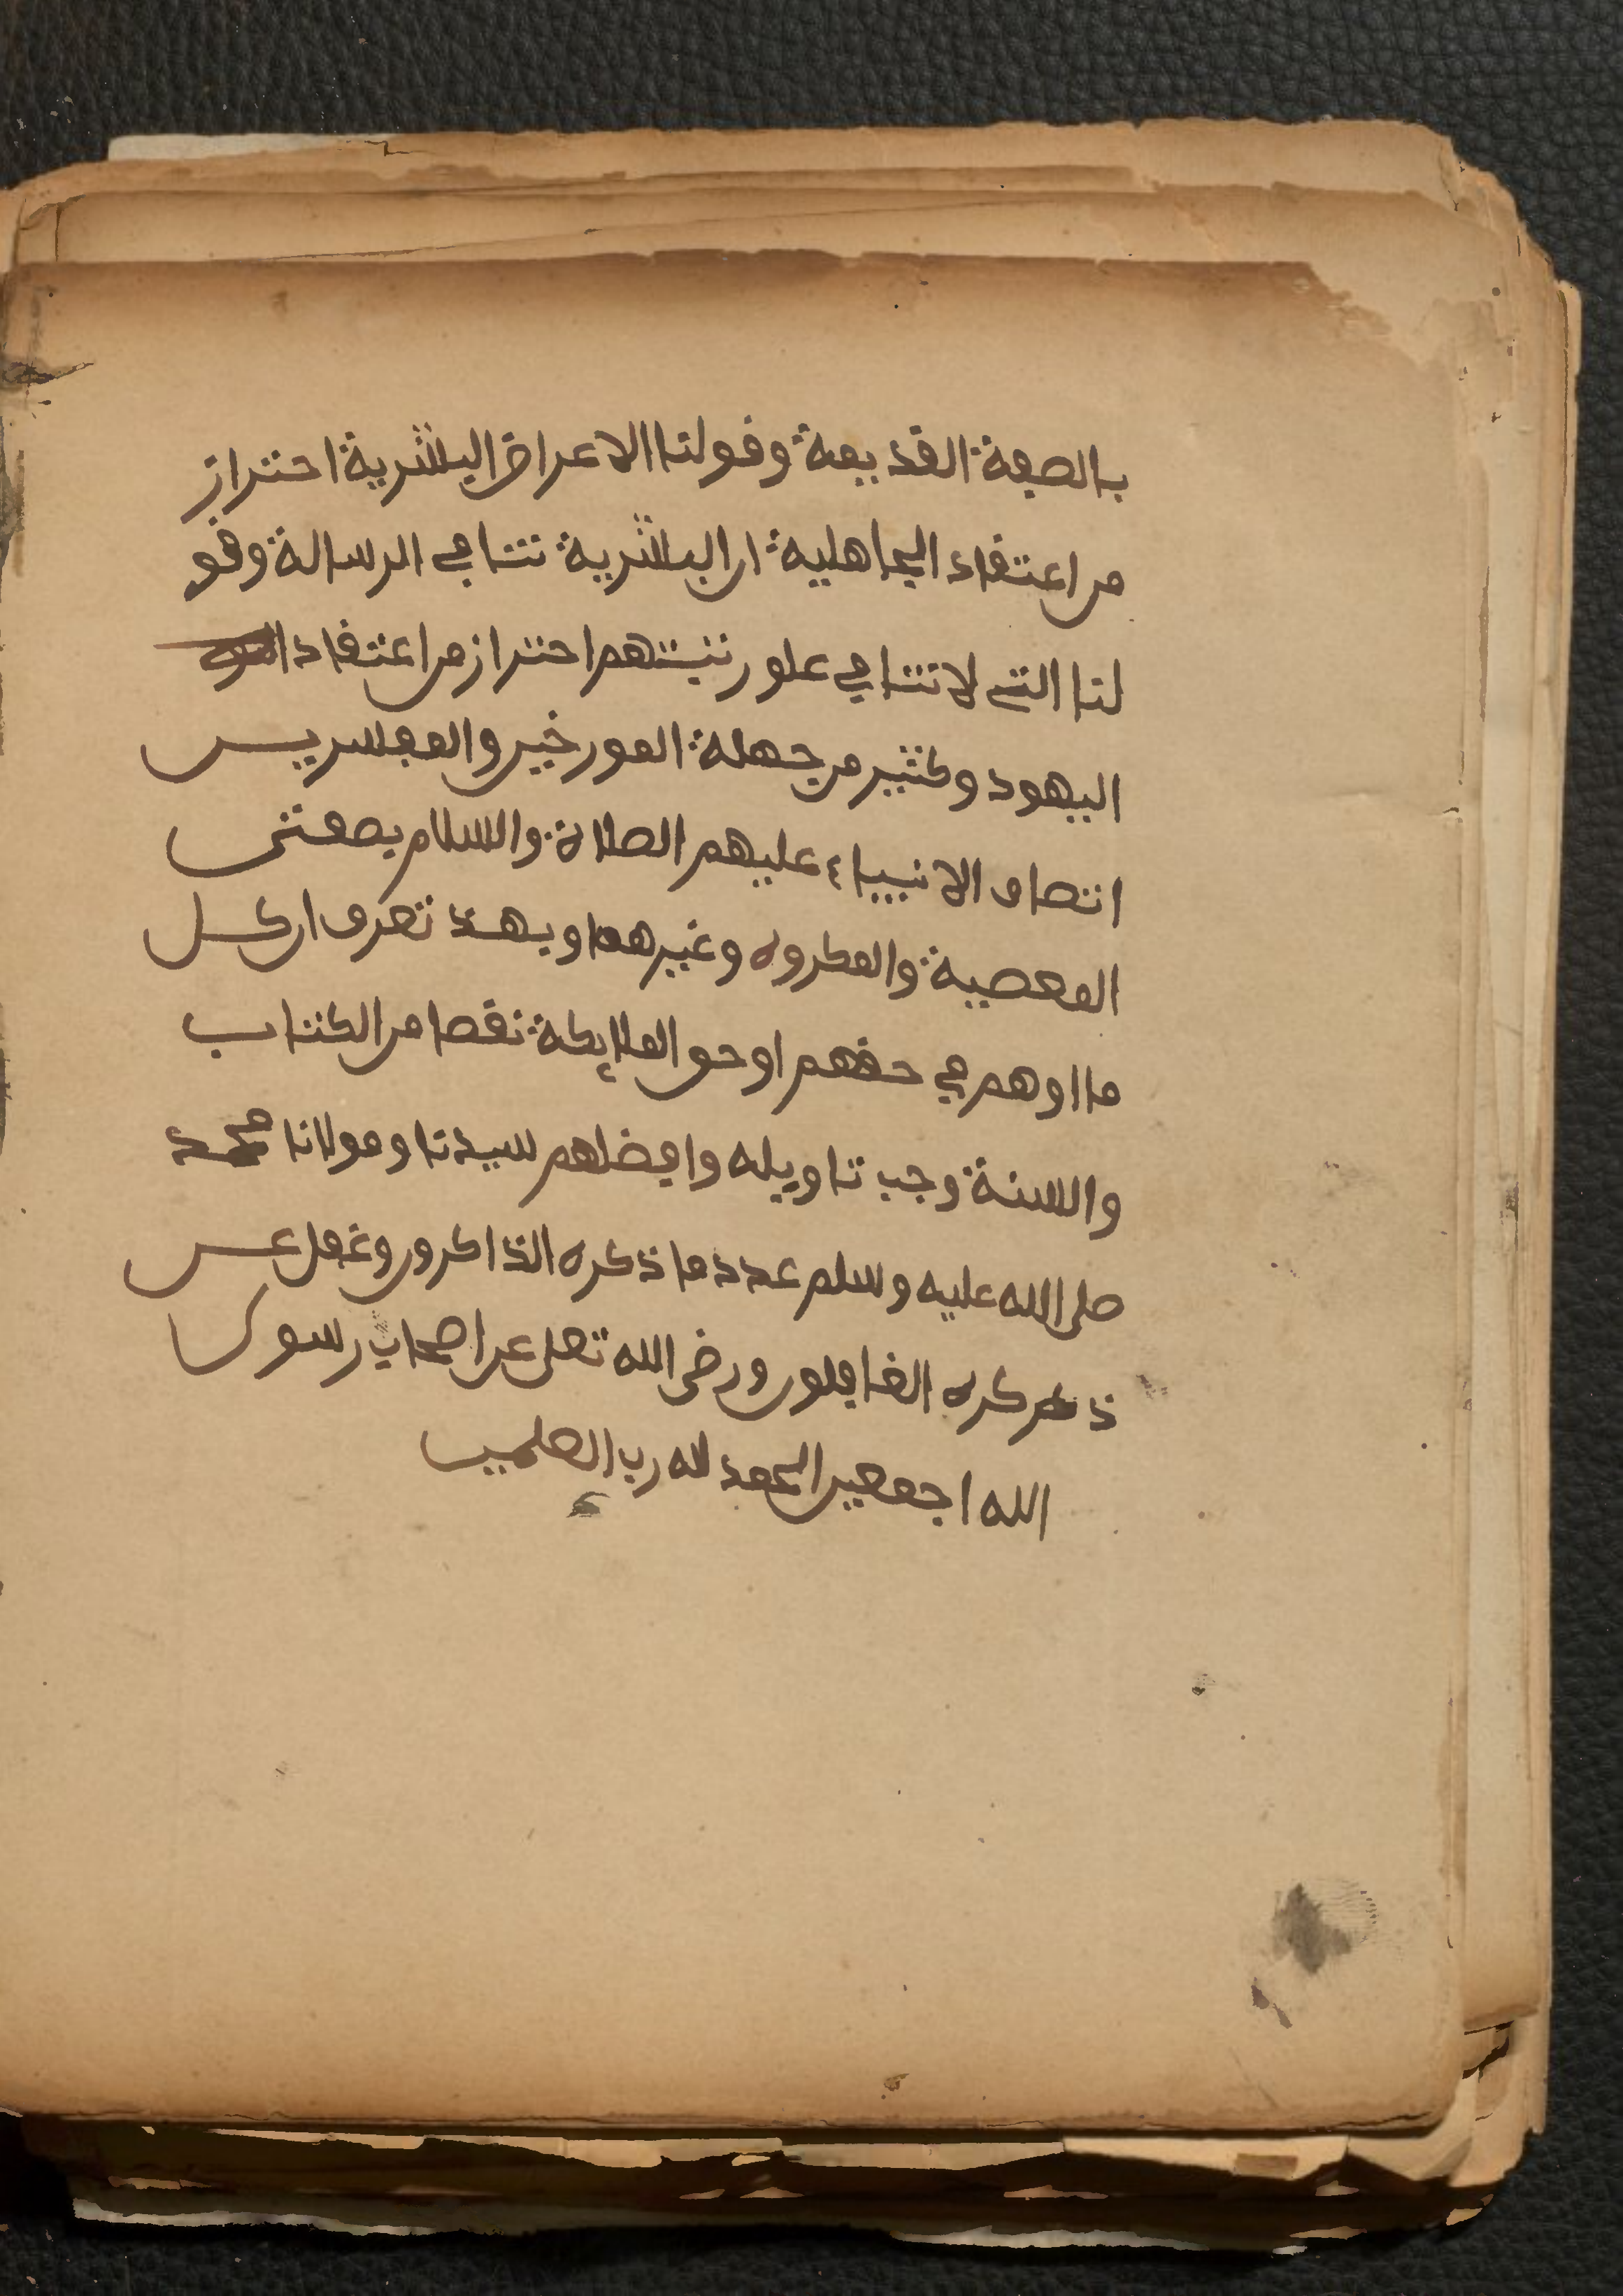 بالصفة القديمة وقولنا الاعراض البشرية احتراز
من اعتقاد الجاهلية ان البشرية تنافي الرسالة وقو
لنا التي لا تنافي علو رتبتهم احتراز من اعتقاد
اليهود وكثير من جهلة المورخين والمفسرين
اتصاف الانبياء عليهم الصلاة والسلام بصفتى
المعصية والمكروه وغيرهما وبهذ تعرف ان كل
ما اوهم في حقهم او حق الملايكة نقصا من الكتاب
والسنة وجب تاويله وافضلهم سيدنا ومولانا محمد
صلى الله عليه وسلم عدد ما ذكره الذاكرون وغفل عن
ذكره الغافلون ورضى الله تعلى عن اصحاب رسول
الله اجمعين الحمد لله رب العلمين